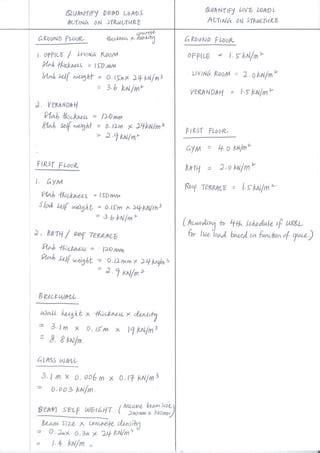 QUANTIFY DEAD LOADS
ACTING ON STRUCTURE
GROUND FLOOR
thickness x concrete density
1. OFFICE / LIVING ROOM
Slab thickness = 150mm
Slab self weight = 0.15m x 24 kN/m³
= 3.6 kN/m²
2. VERANDAH
Slab thickness = 120mm
Slab self weight = 0.12m x 24kN/m³
= 2.9 kN/m²
FIRST FLOOR
1. GYM
Slab thickness = 150mm
Slab self weight = 0.15m x 24kN/m³
= 3.6 kN/m²
2. BATH / ROOF TERRACE
Slab thickness = 120mm
Slab self weight = 0.12mm x 24 kN/m³
= 2.9 kN/m²
BRICKWALL
Wall height x thickness x density
= 3.1m x 0.15m x 19 kN/m³
= 8.8 kN/m
GLASS WALL
3.1m x 0.006m x 0.17 kN/m³
= 0.003 kN/m
BEAM SELF WEIGHT (Assume beam size 200mm x 300mm)
Beam size x concrete density
= 0.2m x 0.3m x 24 kN/m³
= 1.4 kN/m
QUANTIFY LIVE LOADS
ACTING ON STRUCTURE
GROUND FLOOR
OFFICE = 1.5 kN/m²
LIVING ROOM = 2.0 kN/m²
VERANDAH = 1.5 kN/m²
FIRST FLOOR
GYM = 4.0 kN/m²
BATH = 2.0 kN/m²
ROOF TERRACE = 1.5 kN/m²
(According to 4th schedule of UBBL
for live load based on function of space)